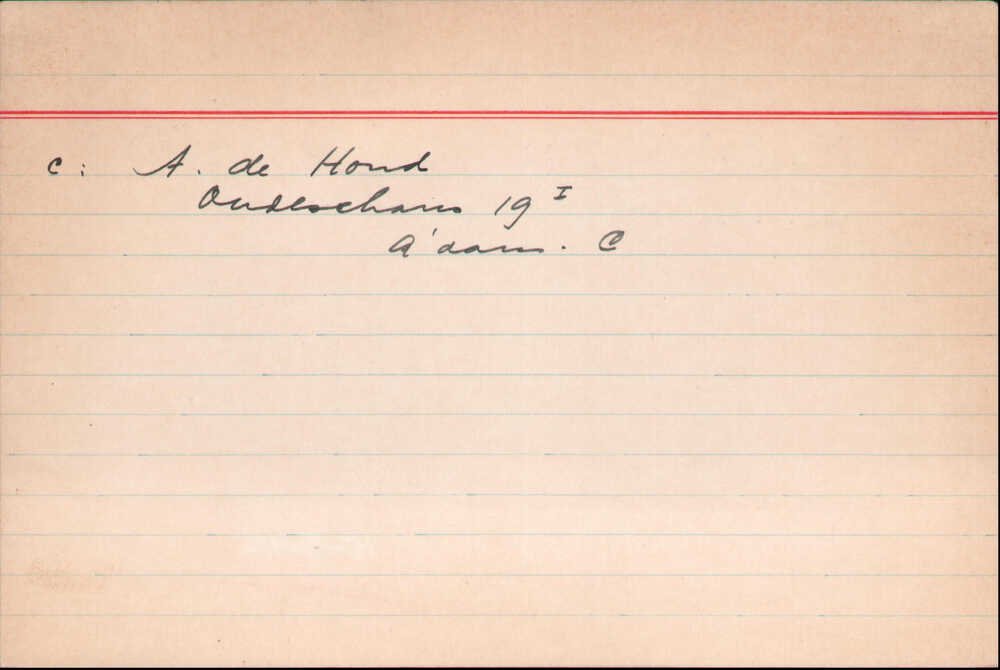 c: A. de Hond
Oudeschans 19 I
A'dam. C